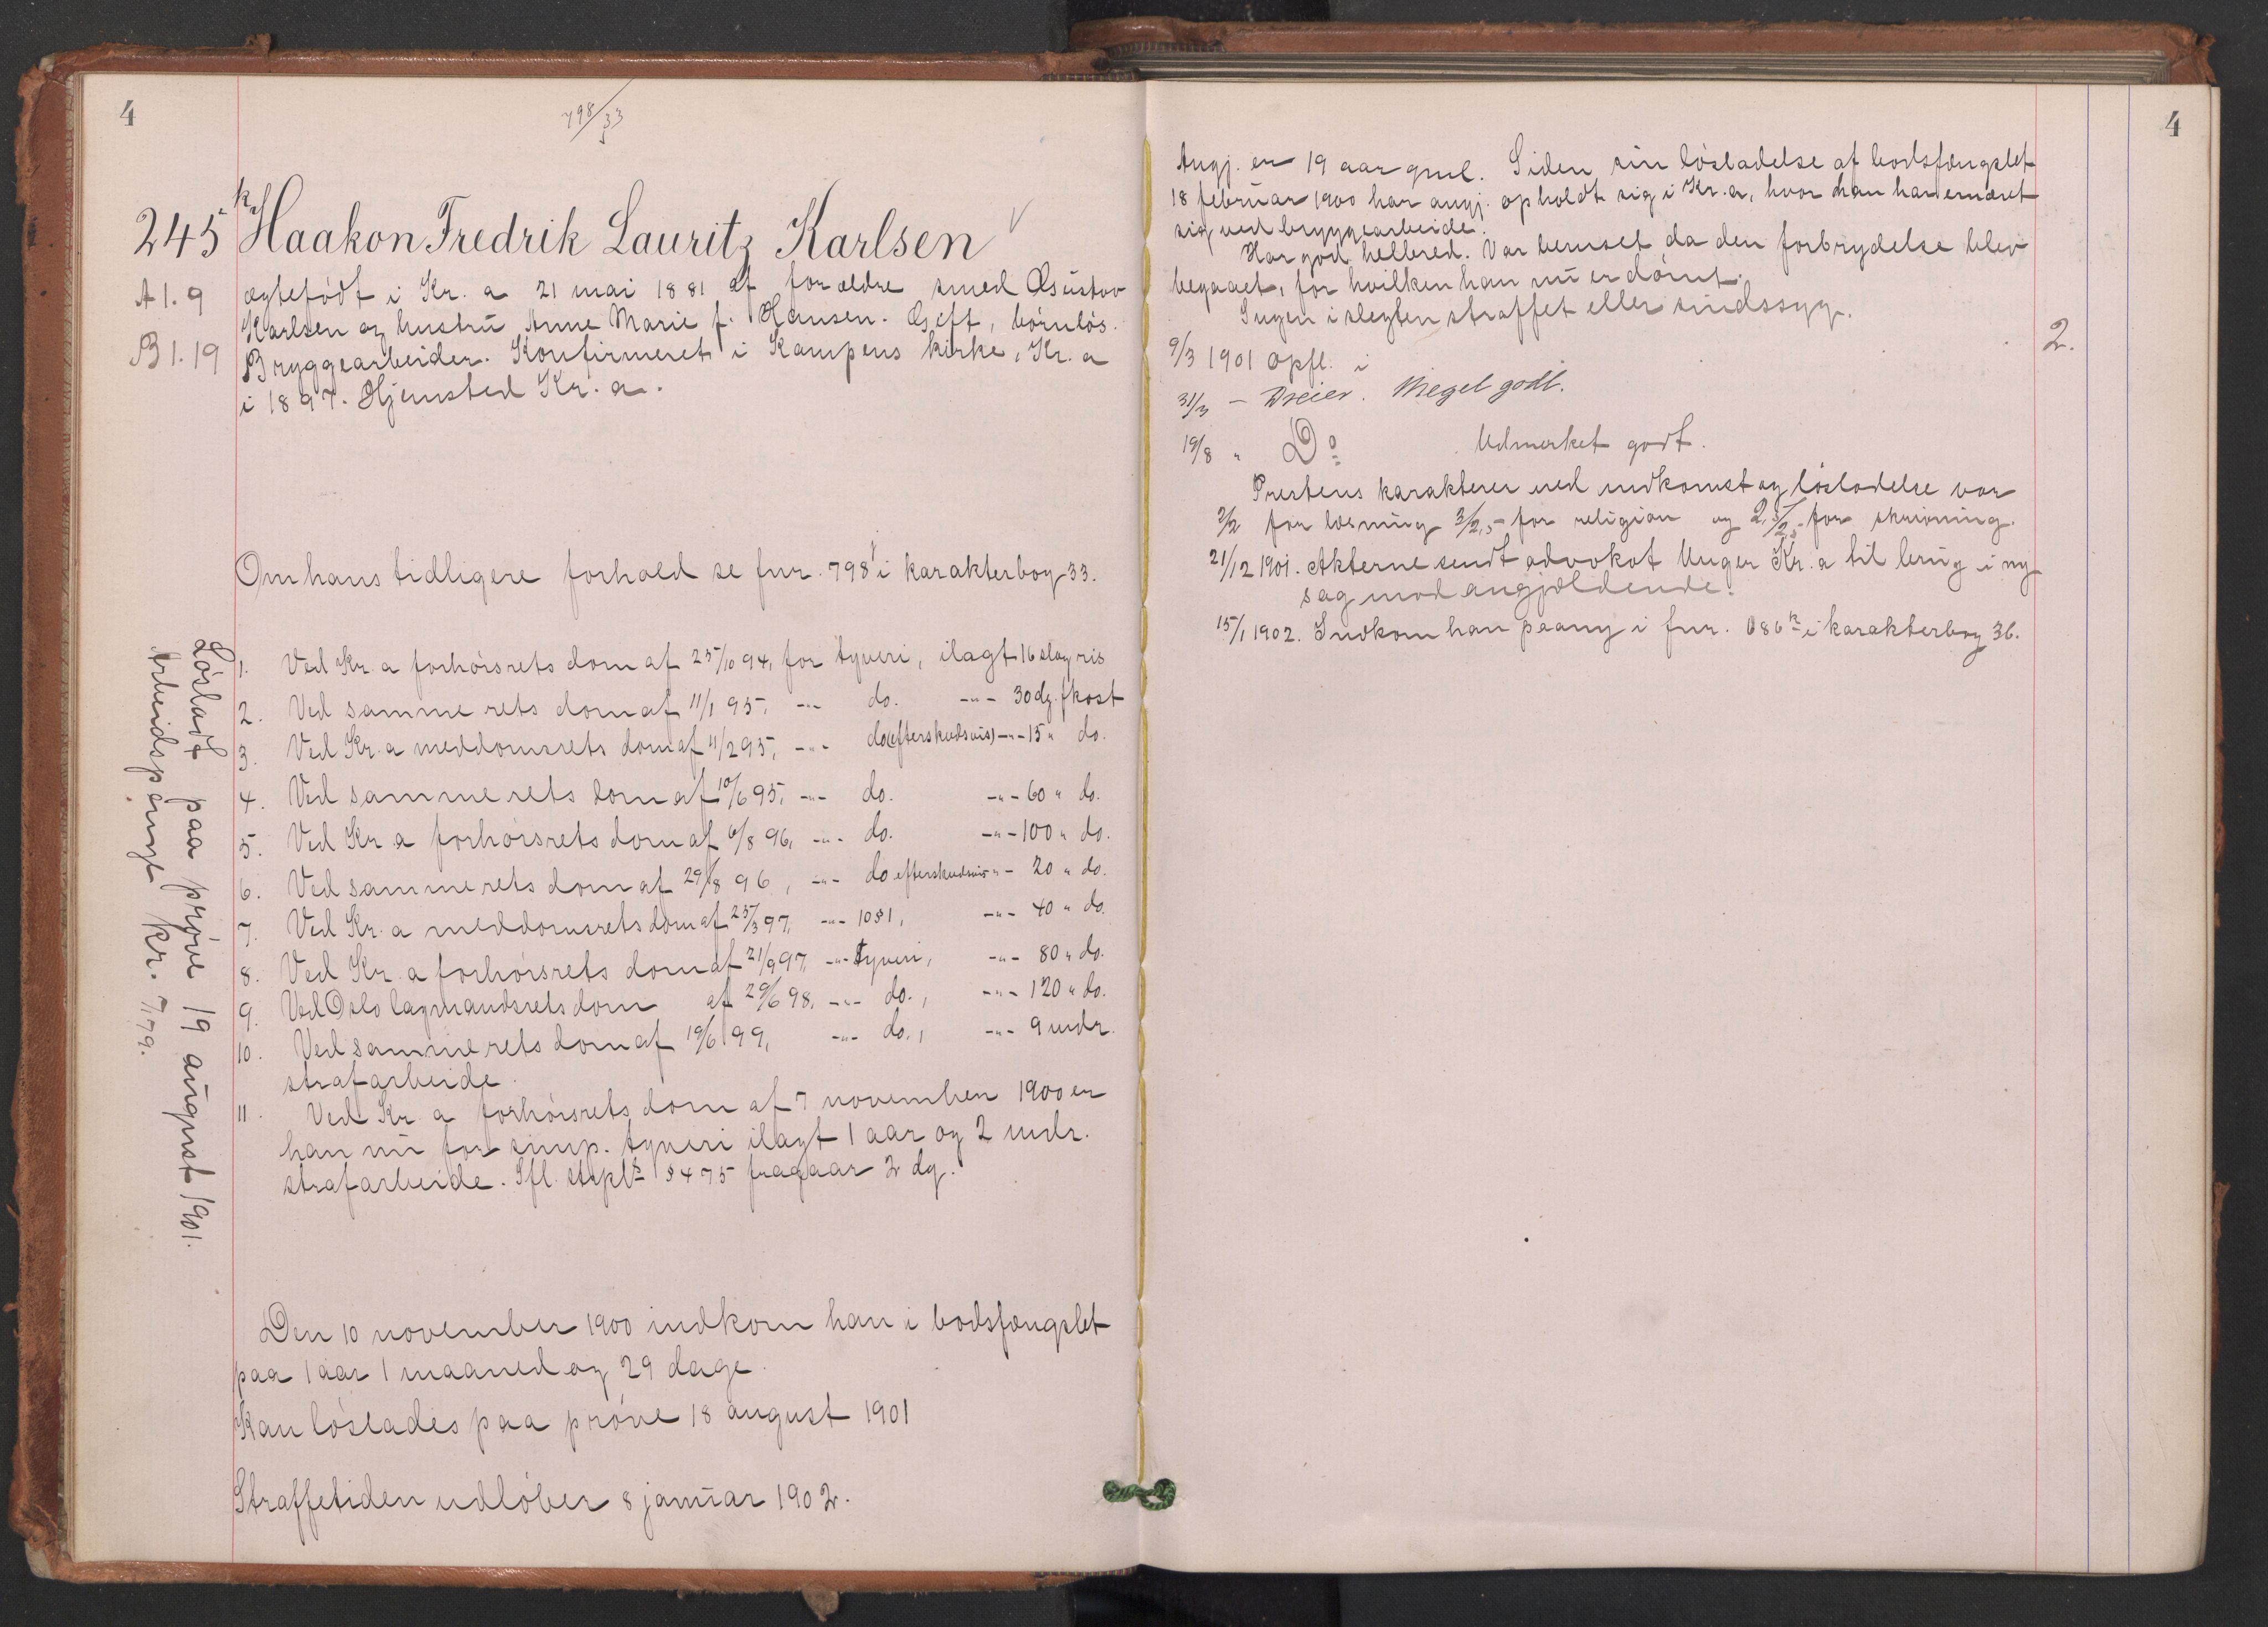 4
798/33
245 k Haakon Fredrik Lauritz Karlsen
A 1. 9
B 1. 19
ægtefødt i Kr. a 21 mai 1881 af forældre smed Gustav
Karlsen og hustru Anne Marie f. Hansen. Gift, børnløs.
Bryggearbeider. Konfirmeret i Kampens kirke, Kr. a
i 1897. Hjemsted Kr. a.
Om hans tidligere forhold se fnr. 798 i karakterbog 33.
1. Ved Kr. a forhørsrets dom af 25/10 94, for tyveri, ilagt 16 slag ris
2. Ved samme rets dom af 11/1 95, -"- do. -"- 30 dg. fkost
3. Ved Kr. a meddomsrets dom af 11/2 95, -"- do (efterskudsvis) -"- 15 " do.
4. Ved samme rets dom af 10/6 95, -"- do. -"- 60 " do.
5. Ved Kr. a forhørsrets dom af 6/8 96, -"- do. -"- 100 " do.
6. Ved samme rets dom af 29/8 96, -"- do efterskudsvis -"- 20 " do.
7. Ved Kr. a meddomsrets dom af 25/3 97, -"- 10 § 1, -"- 40 " do.
8. Ved Kr. a forhørsrets dom af 21/9 97, -"- tyveri, -"- 80 " do.
9. Ved Oslo lagmandsrets dom af 29/6 98, -"- do., -"- 120 " do.
10. Ved samme rets dom af 19/6 99, -"- do., -"- 9 mdr.
strafarbeide.
11. Ved Kr. a forhørsrets dom af 7 november 1900 er
han nu for simp. tyveri ilagt 1 aar og 2 mdr.
strafarbeide. Ifl. stspl § 475 fragaar 2 dg.
Løsladt paa prøve 19 august 1901.
Arbeidspenge kr. 7,79.
Den 10 november 1900 indkom han i bodsfængslet
paa 1 aar 1 maaned og 29 dage.
Kan løslades paa prøve 18 august 1901
Straffetiden udløber 8 januar 1902.
4
Angj. er 19 aar gml. Siden sin løsladelse af bodsfængslet
18 februar 1900 har angj. opholdt sig i Kr. a, hvor han har ernæret
sig ved bryggearbeide.
Har god helbred. Var beruset da den forbrydelse blev
begaaet, for hvilken han nu er dømt.
Ingen i slegten straffet eller sindssyg.
9/3 1901 Opfl. i 2.
31/3 - Dreier. Meget godt.
19/8 " Do Udmerket godt.
Prestens karakterer ved indkomst og løsladelse var
2/2 for læsning 3/2,5 for religion og 2,5/2,5 for skrivning.
21/12 1901. Akterne sendt advokat Unger Kr. a til brug i ny
sag mod angjældende.
15/1 1902. Indkom han paany i fnr. 086 k i karakterbog 36.